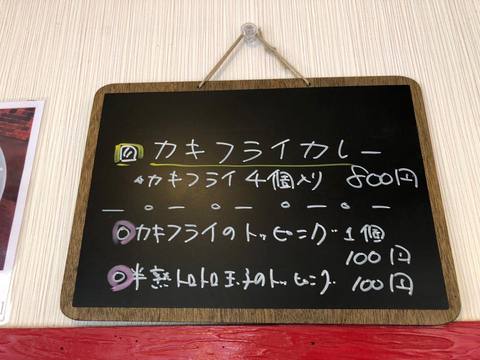 カキフライカレー
カキフライ4個入り 800円
○カキフライのトッピング1個
100円
○半熟トロトロ玉子のトッピング 100円